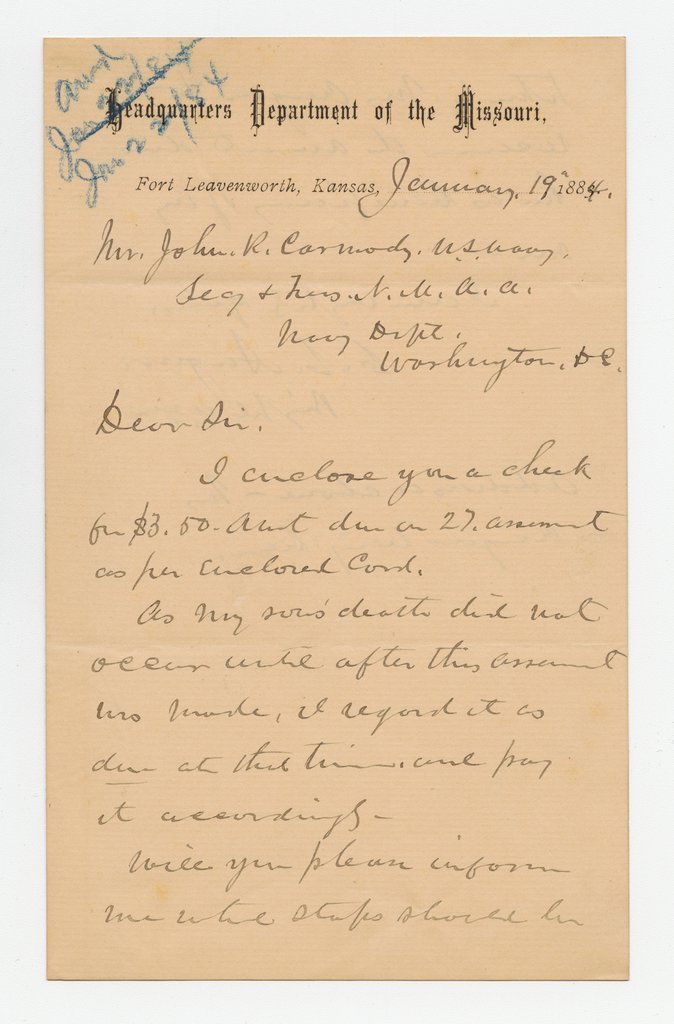 Ansd
Jan 22/84
Jan 22/84
Headquarters Department of the Missouri,
Fort Leavenworth, Kansas, January, 19" 1884.
Mr. John. R. Carmody. U.S. Navy.
Secy & Treas. N. M. A. A.
Navy Dept.
Washington, D.C.
Dear Sir.
I enclose you a check
for $3.50. Amt due on 27. assesment
as per enclosed Card.
As my son's death did not
occur until after this assesment
was made, I regard it as
due at that time. and pay
it accordingly -
Will you please inform
me what steps should be